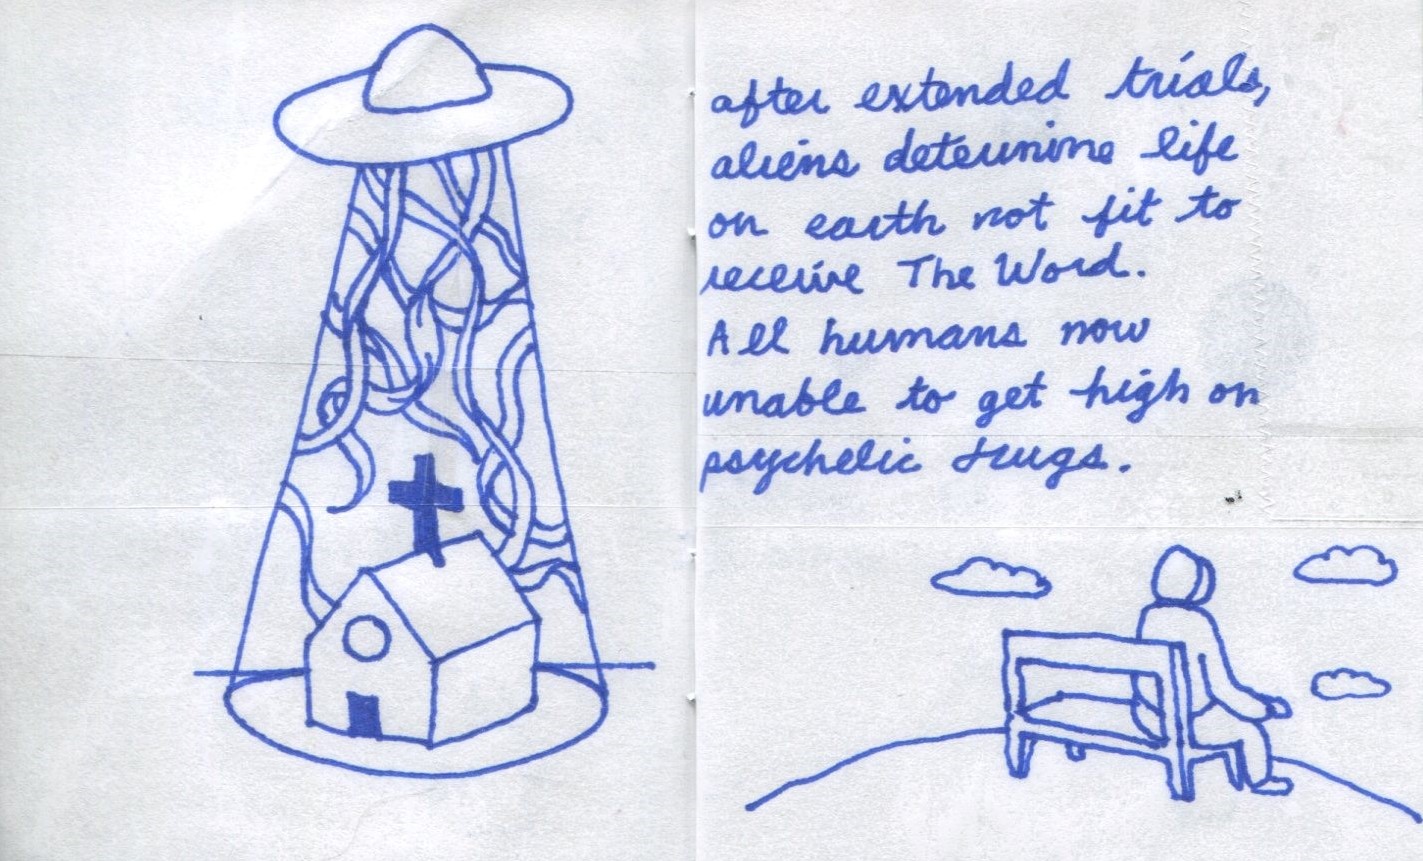 after extended trials,
aliens determine life
on earth not fit to
receive The Word.
All humans now
unable to get high on
psychelic drugs.